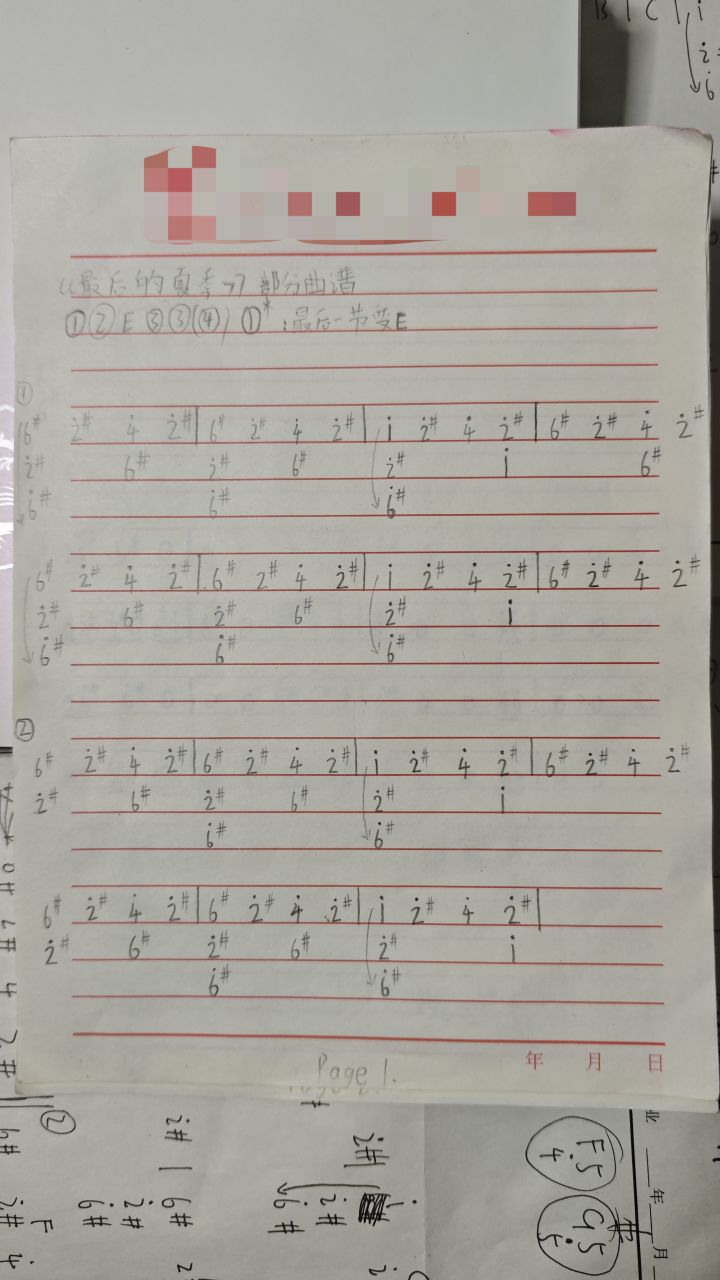 B | C | i
2̇
6̇
《最后的夏季》部分曲谱
①②E③③(④) ①* :最后一节变E
①
6# 2̇# 4̇ 2̇# | 6# 2̇# 4̇ 2̇# | i 2̇# 4̇ 2̇# | 6# 2̇# 4̇ 2̇#
2̇# 6# 2̇# 6# 2̇# i 6#
6̇# 6̇# 6̇#
6# 2̇# 4̇ 2̇# | 6# 2̇# 4̇ 2̇# | i 2̇# 4̇ 2̇# | 6# 2̇# 4̇ 2̇#
2̇# 6# 2̇# 6# 2̇# i
6̇# 6̇# 6̇#
②
6# 2̇# 4̇ 2̇# | 6# 2̇# 4̇ 2̇# | i 2̇# 4̇ 2̇# | 6# 2̇# 4̇ 2̇#
2̇# 6# 2̇# 6# 2̇# i
6̇# 6̇#
6# 2̇# 4̇ 2̇# | 6# 2̇# 4̇ 2̇# | i 2̇# 4̇ 2̇# |
2̇# 6# 2̇# 6# 2̇# i
6̇# 6̇#
年 月 日
Page 1.
②
F5
4̇
G5
5̇
年 月